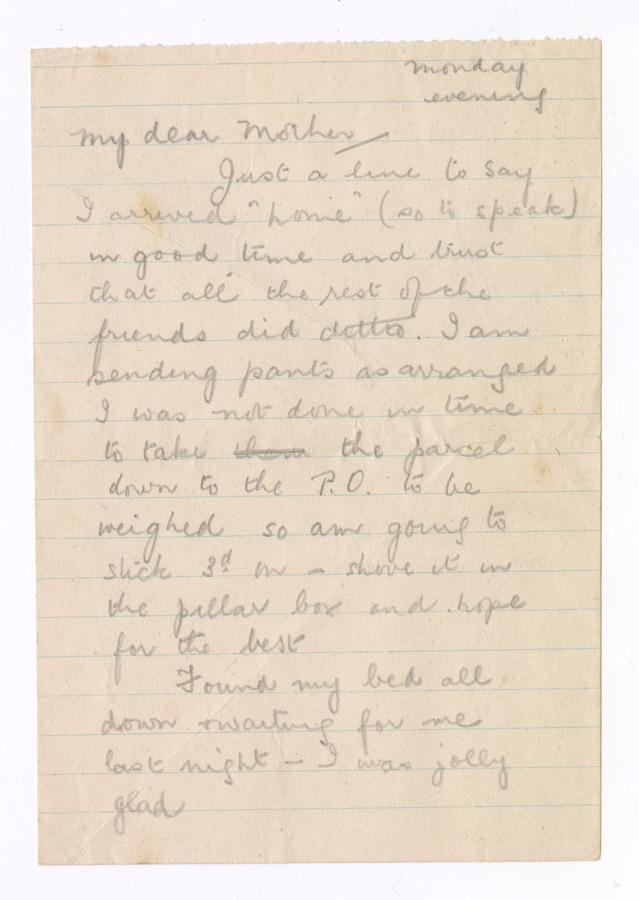 Monday
evening
My dear Mother
Just a line to say
I arrived "home" (so to speak)
in good time and trust
that all the rest of the
friends did ditto. I am
sending pants as arranged
I was not done in time
to take them the parcel
down to the P.O. to be
weighed so am going to
stick 3d on – shove it in
the pillar box and hope
for the best
Found my bed all
down awaiting for me
last night – I was jolly
glad